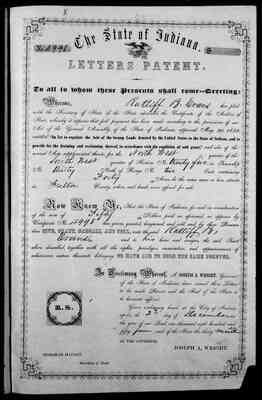 The State of Indiana,
LETTERS PATENT.
To all to whom these Presents shall come—Greeting:
Whereas, Ratliff B. has filed
with the Secretary of State of the State aforesaid the Certificate of the Auditor of
State, whereby it appears that full payment has been made according to the provisions of an
Act of the General Assembly of the State of Indiana, approved May 29, 1852,
entitled "An Act to regulate the Sale of the Swamp Lands donated by the United States to the State of Indiana, and to
provide for the draining and reclaiming thereof, in accordance with the condition of said grant," and also of the
several Acts supplemental thereto, for the North West quarter of the
South West quarter of Section No. Thirty five in Township
No. Thirty North of Range No. Two containing
Forty Acres,
in County,
Now Know Ye, That the State of Indiana, for and in consideration
of the sum of Fifty Dollars paid as expressed in
Certificate No. has given, granted, bargained and sold, and by these Presents
doth GIVE, GRANT, BARGAIN, AND SELL, unto the said Ratliff B.
and to heirs and assigns, the said Tract
above described, together with all the rights, privileges, immunities, and appurtenances of
whatsoever nature thereunto belonging. TO HAVE AND TO HOLD THE SAME FOREVER.
In Testimony Whereof, I, JOSEPH A. WRIGHT, Governor
of the State of Indiana, have caused these Letters
to be made Patent, and the Seal of the State to
be hereunto affixed.
L. S.
Given under my hand at the City of Indianapolis,
the 2d day of December
the year of our Lord one thousand eight hundred and
fifty four and of the State the thirty ninth
BY THE GOVERNOR,
JOSEPH A. WRIGHT.
Secretary of State.